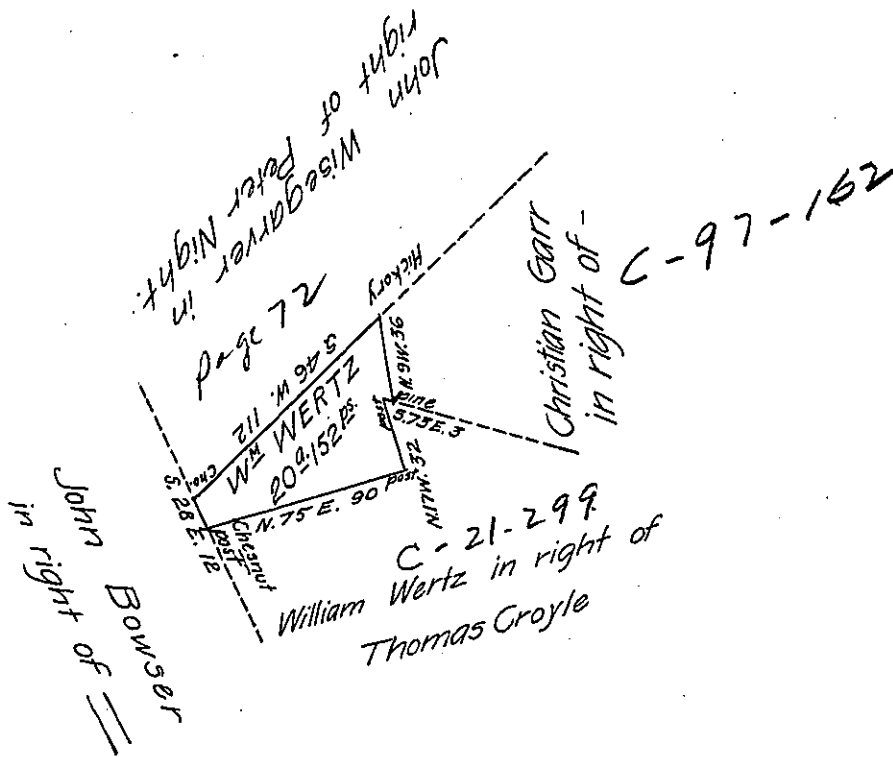 John Wisegarver in
right of Peter Night.
page 72
Hickory
S. 46 W. 112
Wm WERTZ
20 a. 152 ps.
N. 9 W. 36
pine
S. 75 E. 3
post
N. 17 W. 32
post
N. 75 E. 90
Chesnut
post
S. 28 E. 12
Christian Garr
in right of -
C-97-162
C-21-299
William Wertz in right of
Thomas Croyle
John Bowser
in right of